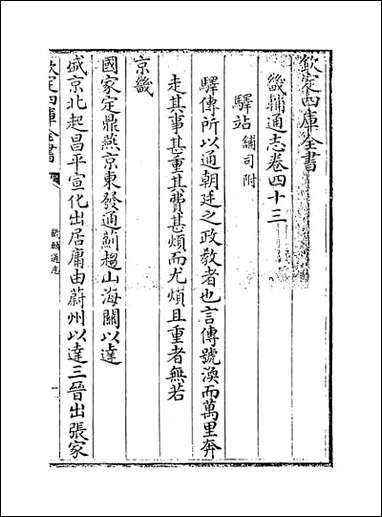 欽定四庫全書
畿輔通志卷四十三
驛站 鋪司附
驛傳所以通朝廷之政敎者也言傳號渙而萬里奔
走其事甚重其費甚煩而尤煩且重者無若
京畿
國家定鼎燕京東發通薊趨山海關以達
盛京北起昌平宣化出居庸由蔚州以達三晉出張家
欽定四庫全書
畿輔通志
一